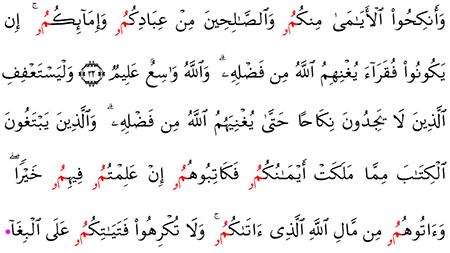 وَأَنكِحُوا۟ ٱلْأَيَـٰمَىٰ مِنكُمُۥ وَٱلصَّـٰلِحِينَ مِنْ عِبَادِكُمُۥ وَإِمَآئِكُمُۥٓ ۚ إِن
يَكُونُوا۟ فُقَرَآءَ يُغْنِهِمُ ٱللَّهُ مِن فَضْلِهِۦ ۗ وَٱللَّهُ وَٰسِعٌ عَلِيمٌ ﴿٣٢﴾ وَلْيَسْتَعْفِفِ
ٱلَّذِينَ لَا يَجِدُونَ نِكَاحًا حَتَّىٰ يُغْنِيَهُمُ ٱللَّهُ مِن فَضْلِهِۦ ۗ وَٱلَّذِينَ يَبْتَغُونَ
ٱلْكِتَـٰبَ مِمَّا مَلَكَتْ أَيْمَـٰنُكُمُۥ فَكَاتِبُوهُمُۥٓ إِنْ عَلِمْتُمُۥ فِيهِمُۥ خَيْرًا ۖ
وَءَاتُوهُمُۥ مِن مَّالِ ٱللَّهِ ٱلَّذِىٓ ءَاتَىٰكُمُۥ ۚ وَلَا تُكْرِهُوا۟ فَتَيَـٰتِكُمُۥ عَلَى ٱلْبِغَآ